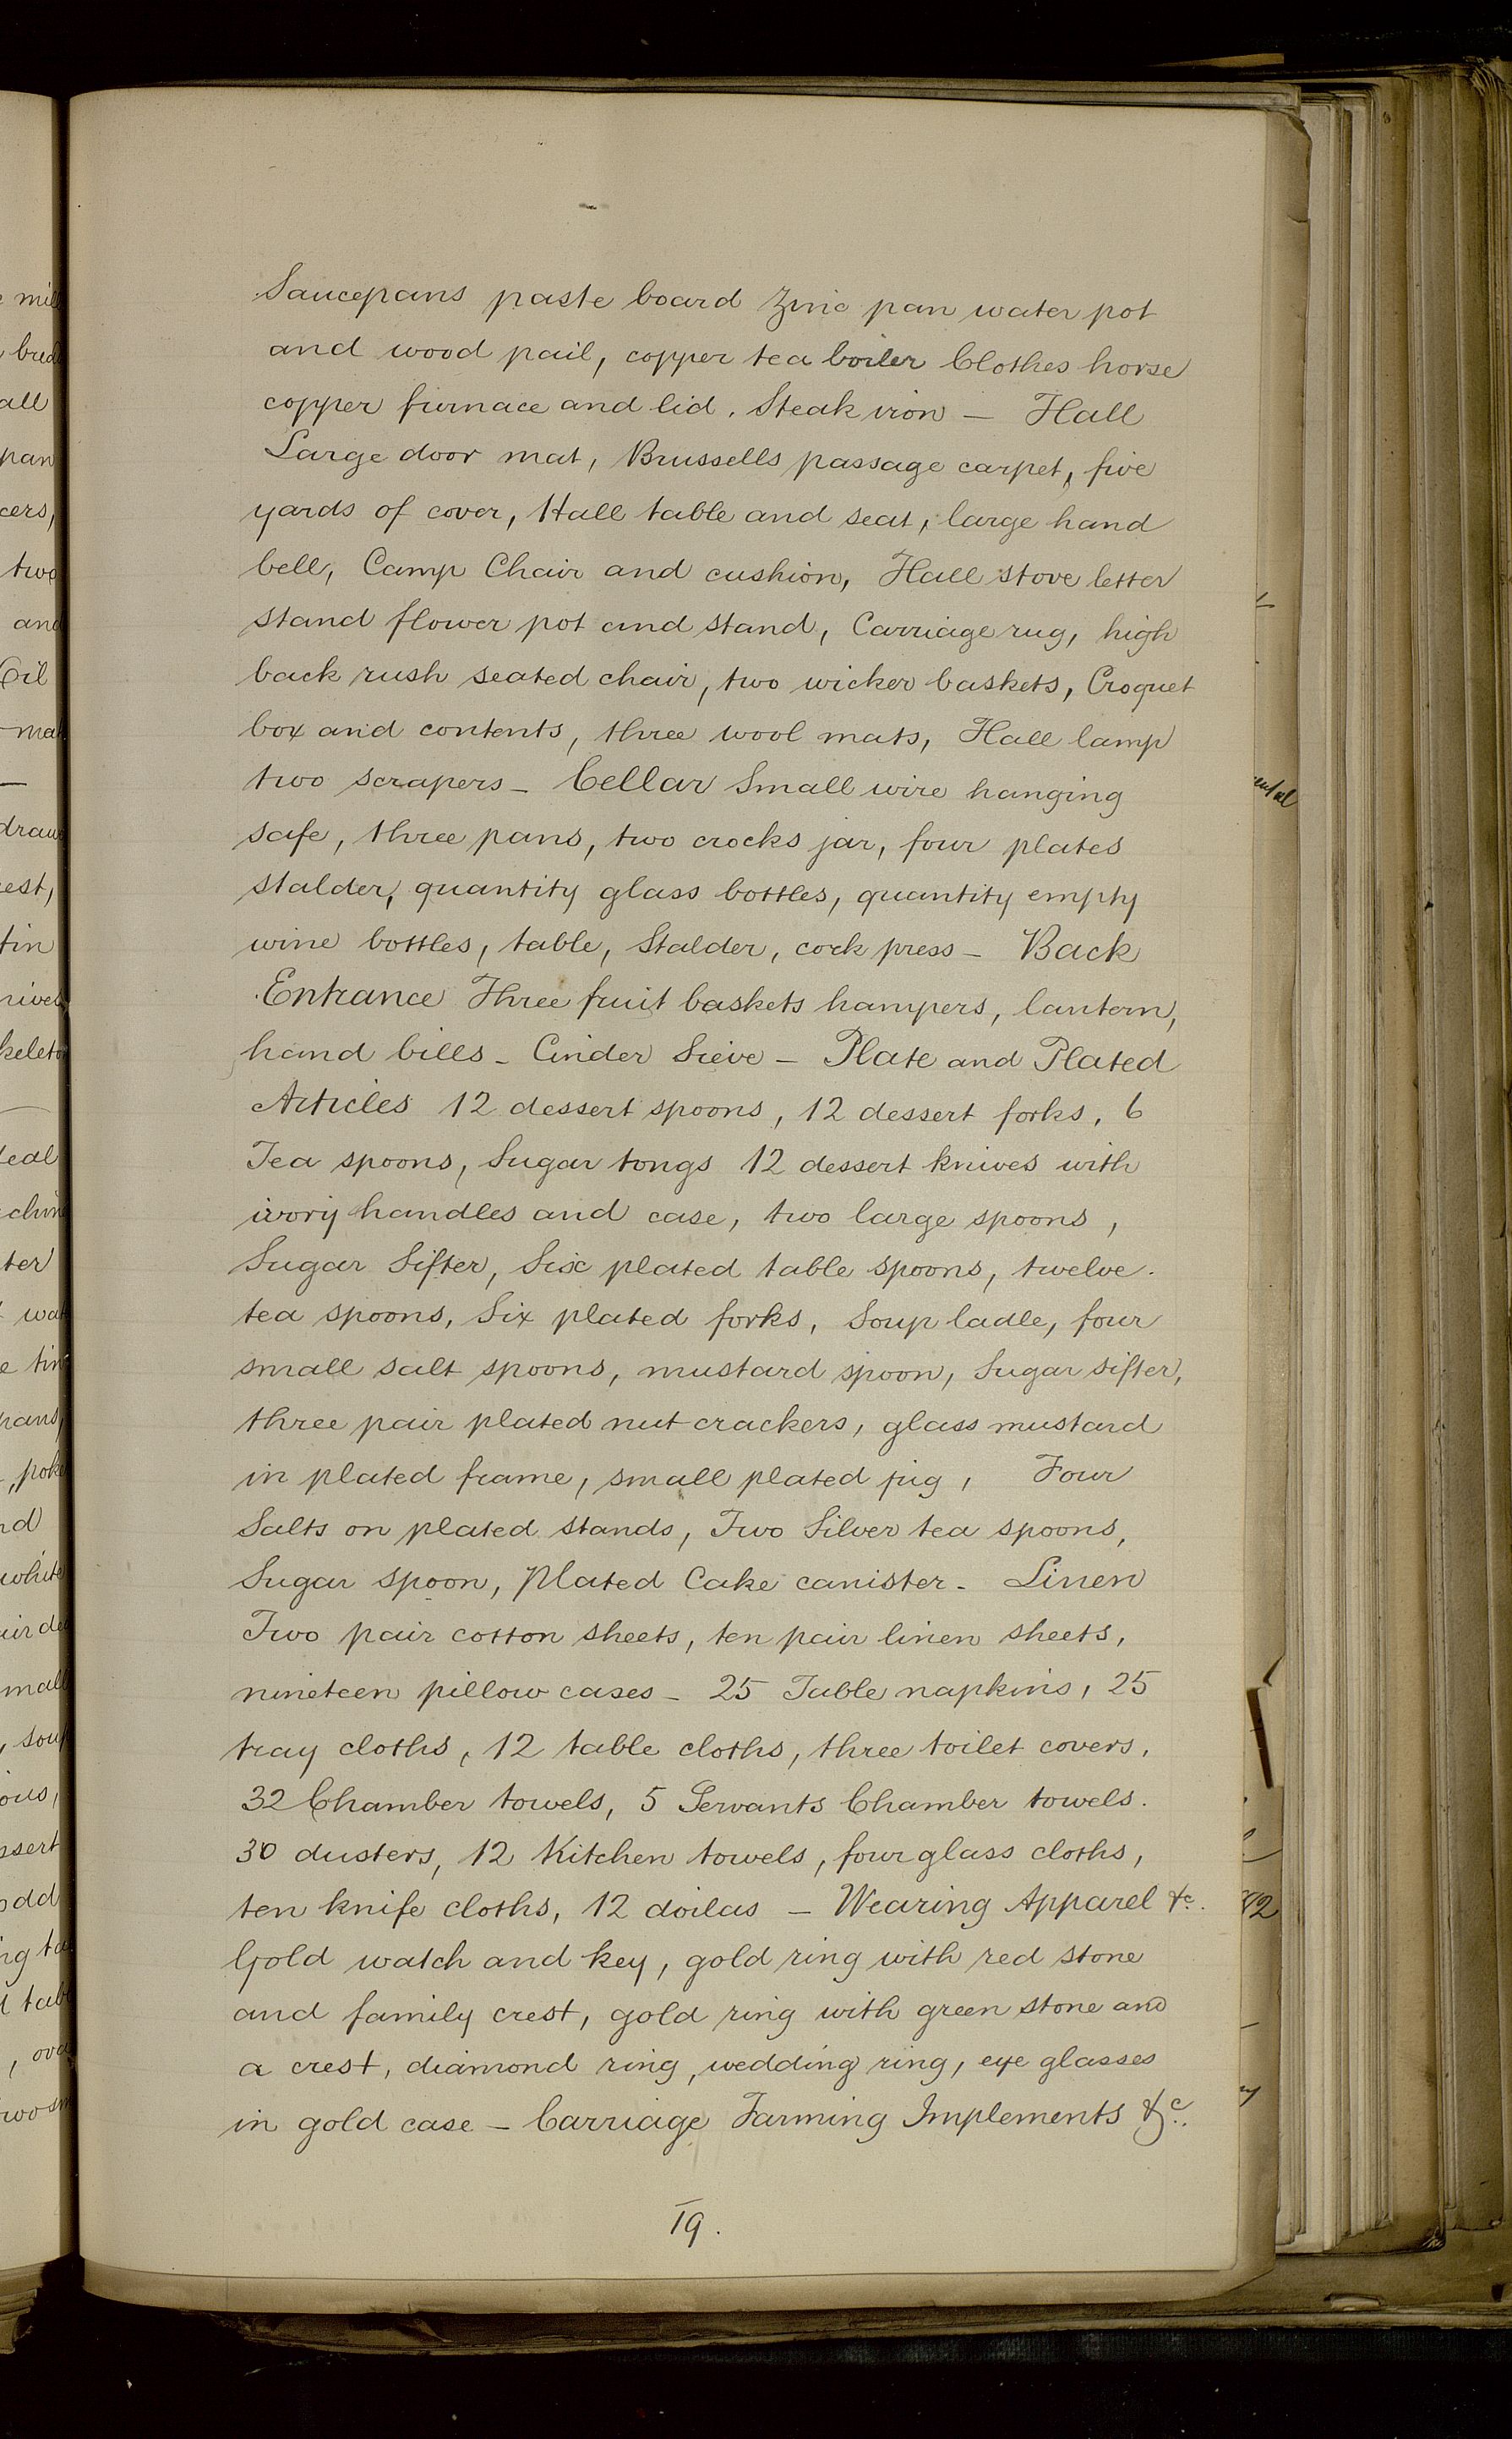 Saucepans paste board Zinc pan water pot
and wood pail, copper tea boiler Clothes horse
copper furnace and lid. Steak iron — Hall
Large door mat, Brussells passage carpet, five
yards of cover, Hall table and seat, large hand
bell, Camp Chair and cushion, Hall stove letter
stand flower pot and stand, Carriage rug, high
back rush seated chair, two wicker baskets, Croquet
box and contents, three wool mats, Hall lamp
two scrapers - Cellar Small wire hanging
safe, three pans, two crocks jar, four plates
stalder, quantity glass bottles, quantity empty
wine bottles, table, Stalder, cork press - Back
Entrance Three fruit baskets hampers, lantern,
hand bills - Cinder Sieve - Plate and Plated
Articles 12 dessert spoons, 12 dessert forks, 6
Tea spoons, Sugar tongs 12 dessert knives with
ivory handles and case, two large spoons,
Sugar Sifter, Six plated table spoons, twelve
tea spoons, Six plated forks, Soup ladle, four
small salt spoons, mustard spoon, Sugar sifter,
three pair plated nut crackers, glass mustard
in plated frame, small plated jug, Four
Salts on plated stands, Two Silver tea spoons,
Sugar spoon, Plated Cake canister - Linen
Two pair cotton sheets, ten pair linen sheets,
nineteen pillow cases - 25 Table napkins, 25
tray cloths, 12 table cloths, three toilet covers,
32 Chamber towels, 5 Servants Chamber towels.
30 dusters, 12 Kitchen towels, four glass cloths,
ten knife cloths, 12 doilas — Wearing Apparel &c.
Gold watch and key, gold ring with red stone
and family crest, gold ring with green stone and
a crest, diamond ring, wedding ring, eye glasses
in gold case — Carriage Farming Implements &c.
19.